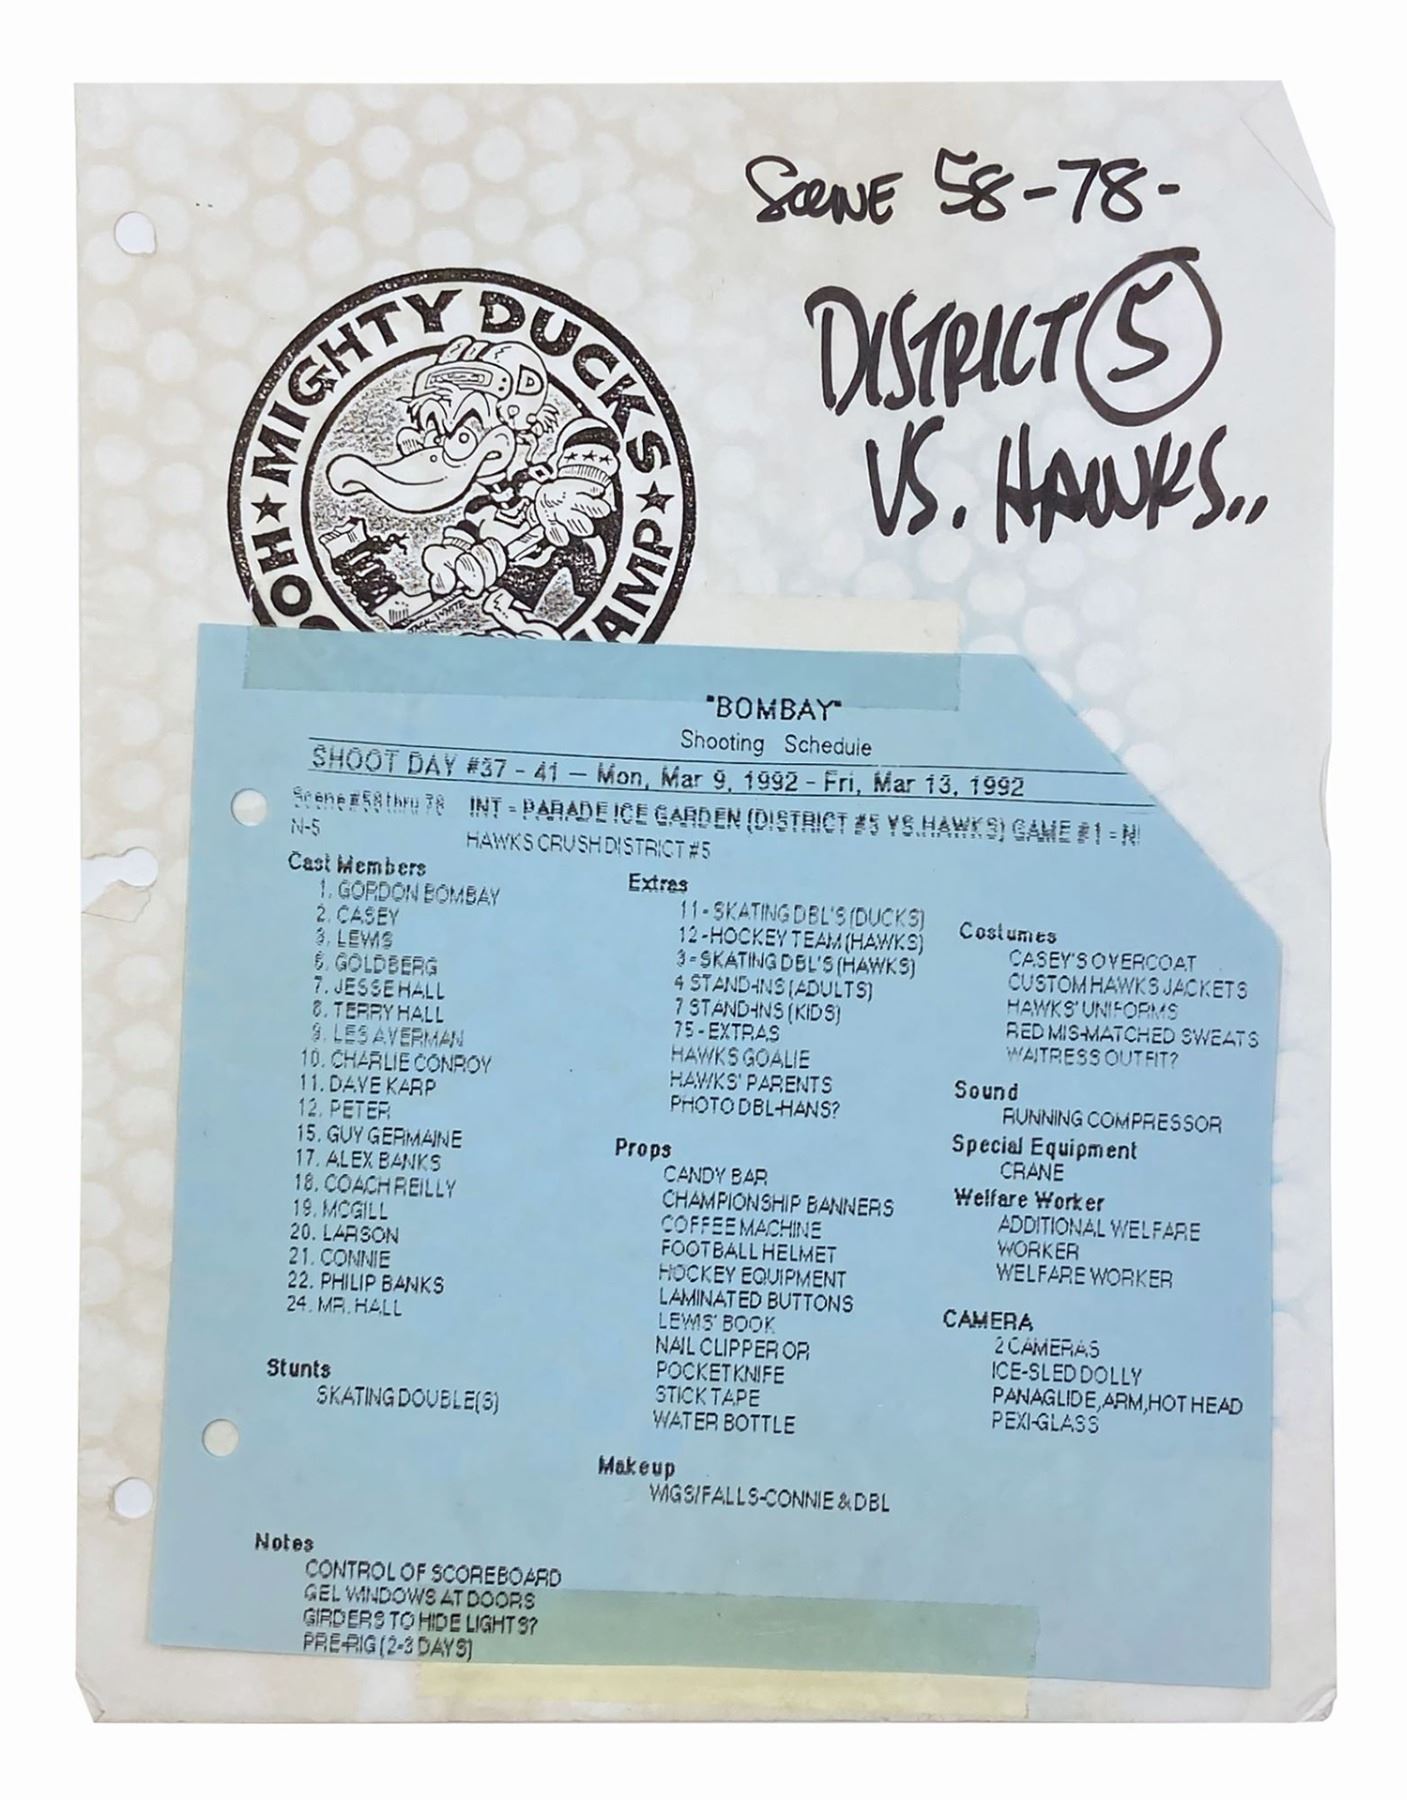 SCENE 58-78-
DISTRICT 5
VS. HAWKS..
★ MIGHTY DUCKS ★
HO
AMP
JACK WHITE
D
"BOMBAY"
Shooting Schedule
SHOOT DAY #37 - 41 — Mon, Mar 9, 1992 - Fri, Mar 13, 1992
Scene #58 thru 78 INT - PARADE ICE GARDEN (DISTRICT #5 VS. HAWKS) GAME #1 - NI
N-5 HAWKS CRUSH DISTRICT #5
Cast Members
1. GORDON BOMBAY
2. CASEY
3. LEWIS
6. GOLDBERG
7. JESSE HALL
8. TERRY HALL
9. LES AVERMAN
10. CHARLIE CONROY
11. DAVE KARP
12. PETER
15. GUY GERMAINE
17. ALEX BANKS
18. COACH REILLY
19. MCGILL
20. LARSON
21. CONNIE
22. PHILIP BANKS
24. MR. HALL
Stunts
SKATING DOUBLE(S)
Extras
11 - SKATING DBL'S (DUCKS)
12 -HOCKEY TEAM (HAWKS)
3 - SKATING DBL'S (HAWKS)
4 STAND-INS (ADULTS)
7 STAND-INS (KIDS)
75 - EXTRAS
HAWKS GOALIE
HAWKS' PARENTS
PHOTO DBL-HANS?
Props
CANDY BAR
CHAMPIONSHIP BANNERS
COFFEE MACHINE
FOOTBALL HELMET
HOCKEY EQUIPMENT
LAMINATED BUTTONS
LEWIS' BOOK
NAIL CLIPPER OR
POCKETKNIFE
STICK TAPE
WATER BOTTLE
Makeup
WIGS/FALLS-CONNIE & DBL
Costumes
CASEY'S OVERCOAT
CUSTOM HAWKS JACKETS
HAWKS' UNIFORMS
RED MIS-MATCHED SWEATS
WAITRESS OUTFIT?
Sound
RUNNING COMPRESSOR
Special Equipment
CRANE
Welfare Worker
ADDITIONAL WELFARE
WORKER
WELFARE WORKER
CAMERA
2 CAMERAS
ICE-SLED DOLLY
PANAGLIDE,ARM,HOT HEAD
PEXI-GLASS
Notes
CONTROL OF SCOREBOARD
GEL WINDOWS AT DOORS
GIRDERS TO HIDE LIGHTS?
PRE-RIG (2-3 DAYS)